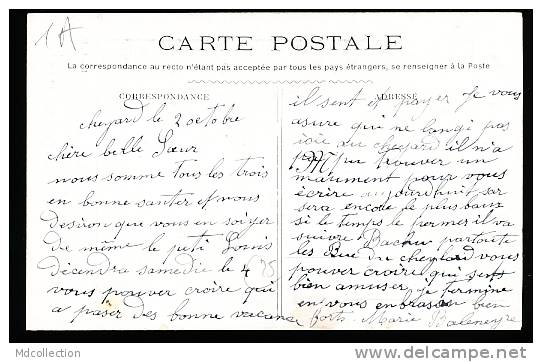 1 A
CARTE POSTALE
La correspondance au recto n'étant pas acceptée par tous les pays étrangers, se renseigner à la Poste
CORRESPONDANCE
cheylard le 2 octobre
chère belle Sœur
nous somme tous les trois
en bonne santer et nous
desiron que vous en soiyer
de même le peti Louis
décendra samedie le 4
vous pouver croire qui
a passer des bonne vacance
ADRESSE
il sent et payer Je vous
asure qui ne langi pas
ici au cheylard il n'a
pas pu trouver un
mamument pour vous
écrire aujourdhuit sar
sera encore le plus baux
si le temps le permes il va
suivre Bachu partoute
les Rue du cheylard vous
pouver croire qui sest
bien amuser je termine
en vous enbrasan bien
forts Marie Baleneyre
Mdcollection
www.delcampe.net